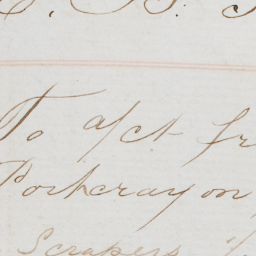 To a/ct fr
Portcrayon
Scrapers